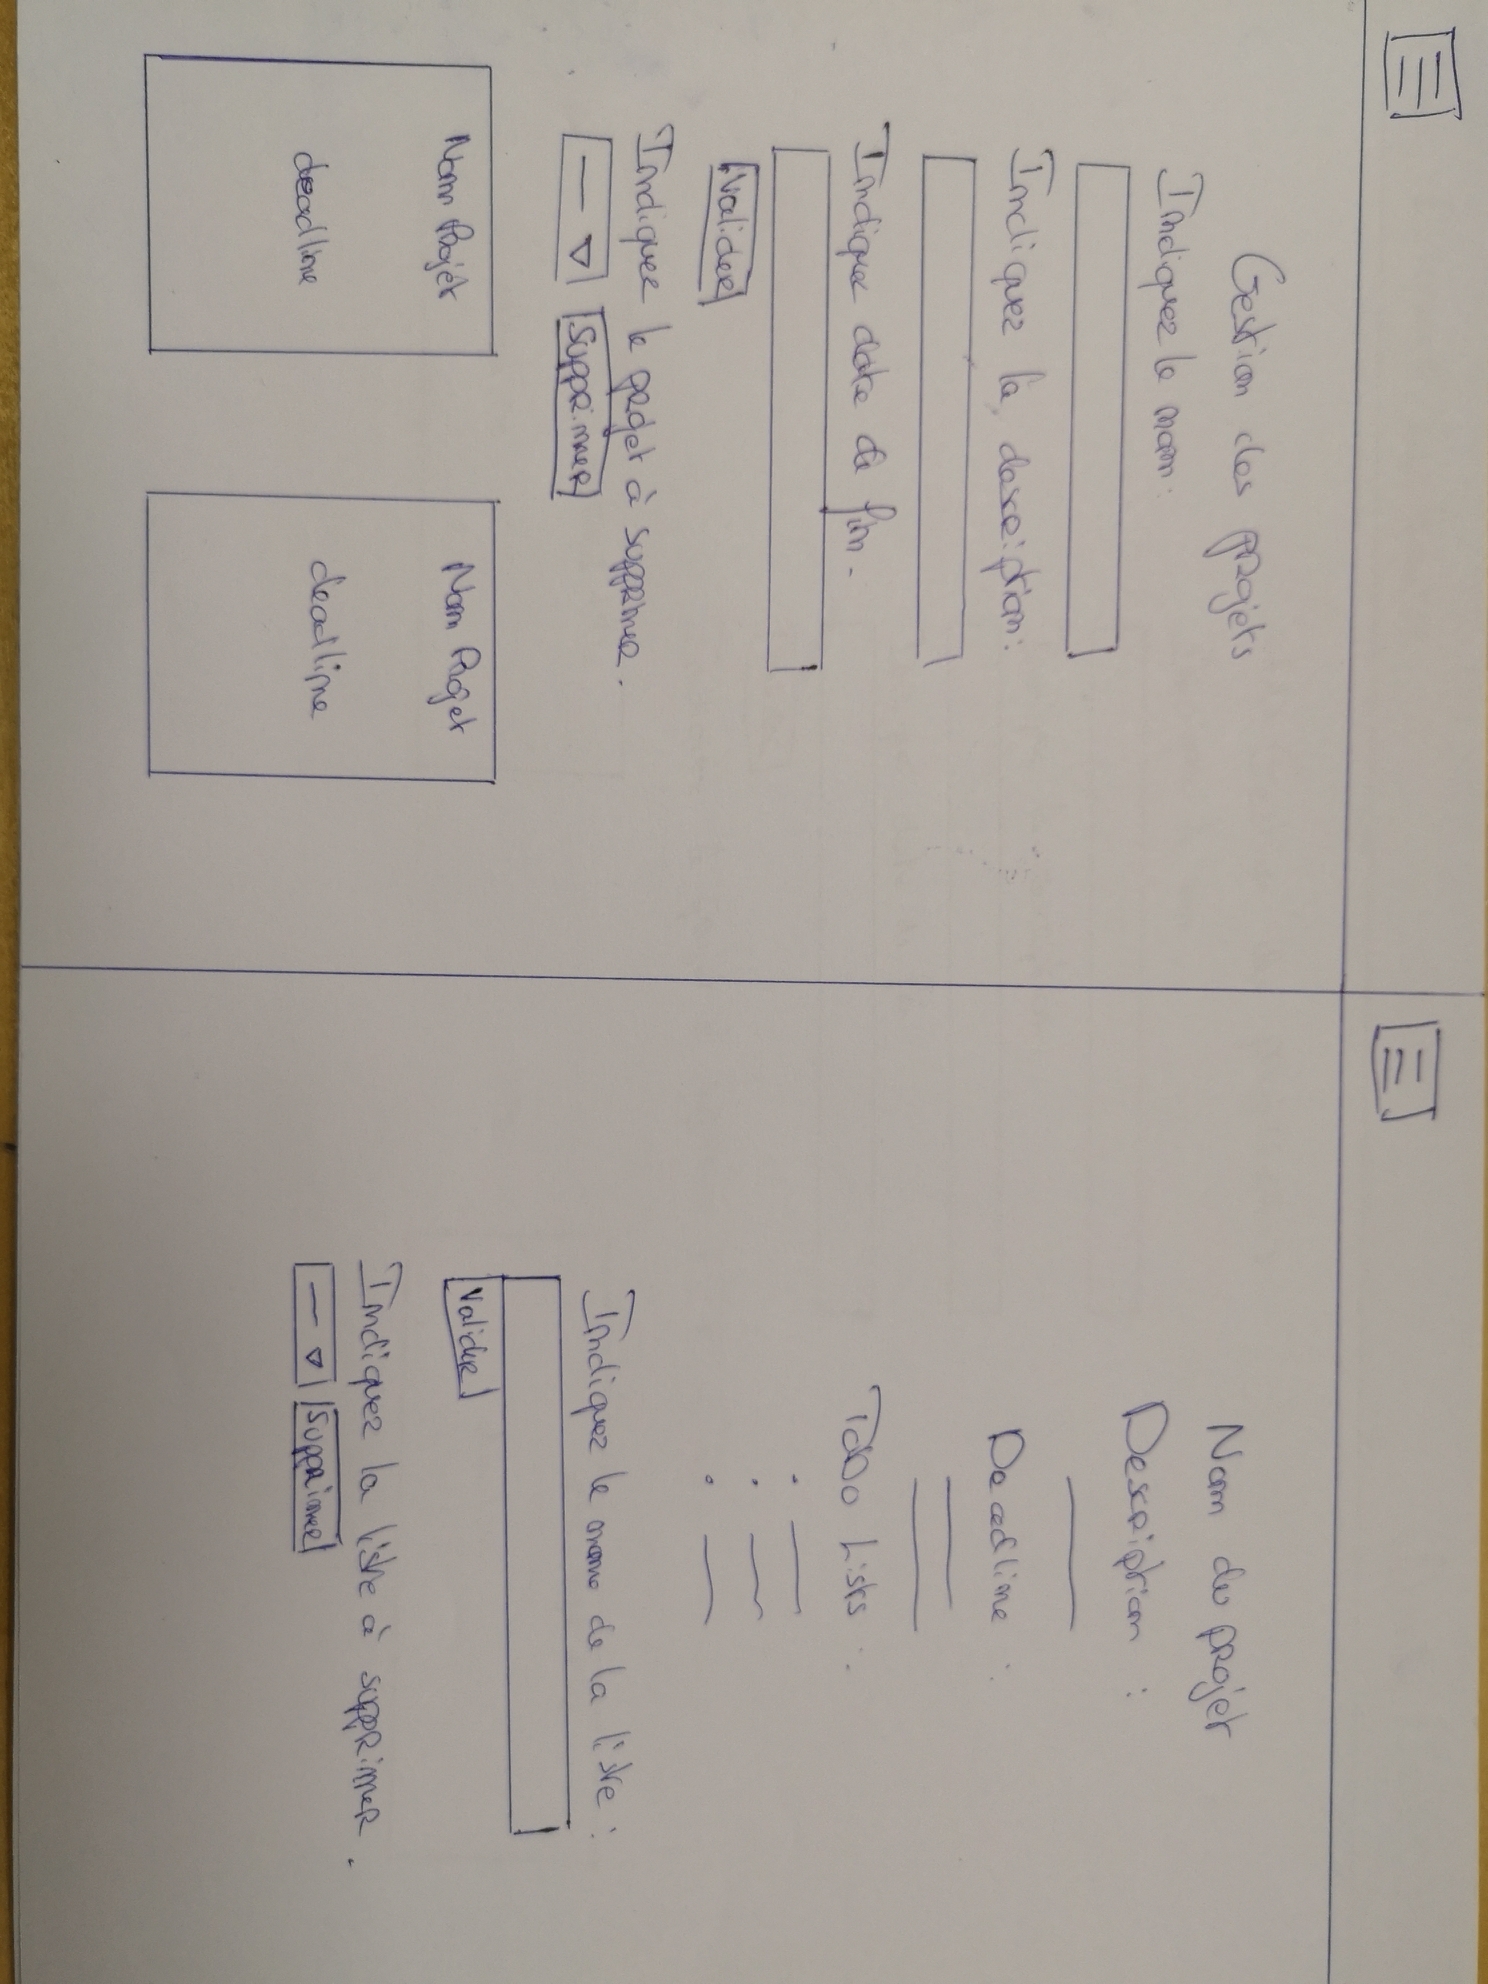 Gestion des projets
Indiquez le nom:
Indiquez la description:
Indiquez date de fin.
Valider
Indiquez le projet à supprimer.
Supprimer
Nom Projet
deadline
Nom Projet
deadline
Nom du projet
Description :
Deadline :
ToDo Lists :
Indiquez le nom de la liste :
Valider
Indiquez la liste à supprimer.
Supprimer